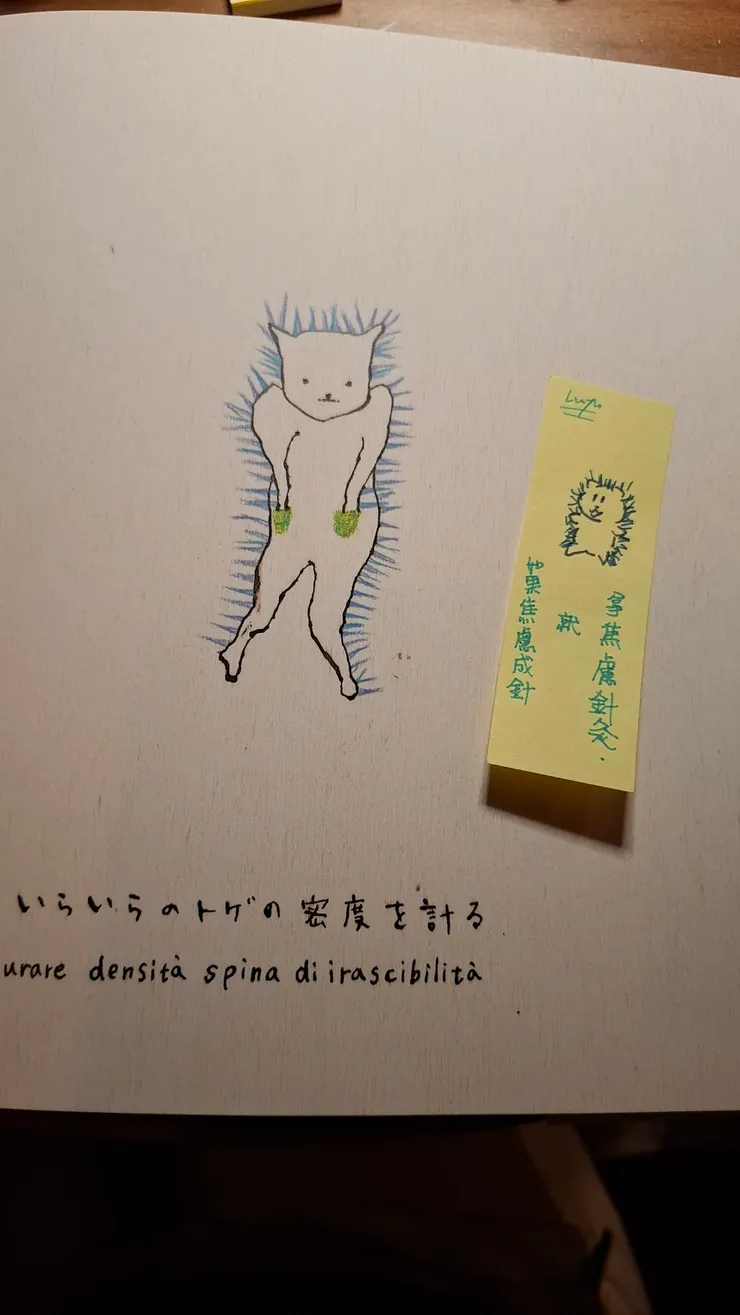 いらいらのトゲの密度を計る
urare densità spina di irascibilità
如果焦慮成針
就
拿焦慮針灸.